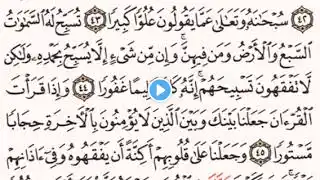 ٤٢ سُبْحَٰنَهُۥ وَتَعَٰلَىٰ عَمَّا يَقُولُونَ عُلُوًّا كَبِيرًا ٤٣ تُسَبِّحُ لَهُ ٱلسَّمَٰوَٰتُ
ٱلسَّبْعُ وَٱلْأَرْضُ وَمَن فِيهِنَّ ۚ وَإِن مِّن شَىْءٍ إِلَّا يُسَبِّحُ بِحَمْدِهِۦ وَلَٰكِن
لَّا تَفْقَهُونَ تَسْبِيحَهُمْ ۗ إِنَّهُۥ كَا لِيمًا غَفُورًا ٤٤ وَإِذَا قَرَأْتَ
ٱلْقُرْءَانَ جَعَلْنَا بَيْنَكَ وَبَيْنَ ٱلَّذِينَ لَا يُؤْمِنُونَ بِٱلْءَاخِرَةِ حِجَابًا
مَّسْتُورًا ٤٥ وَجَعَلْنَا عَلَىٰ قُلُوبِهِمْ أَكِنَّةً أَن يَفْقَهُوهُ وَفِىٓ ءَاذَانِهِمْ